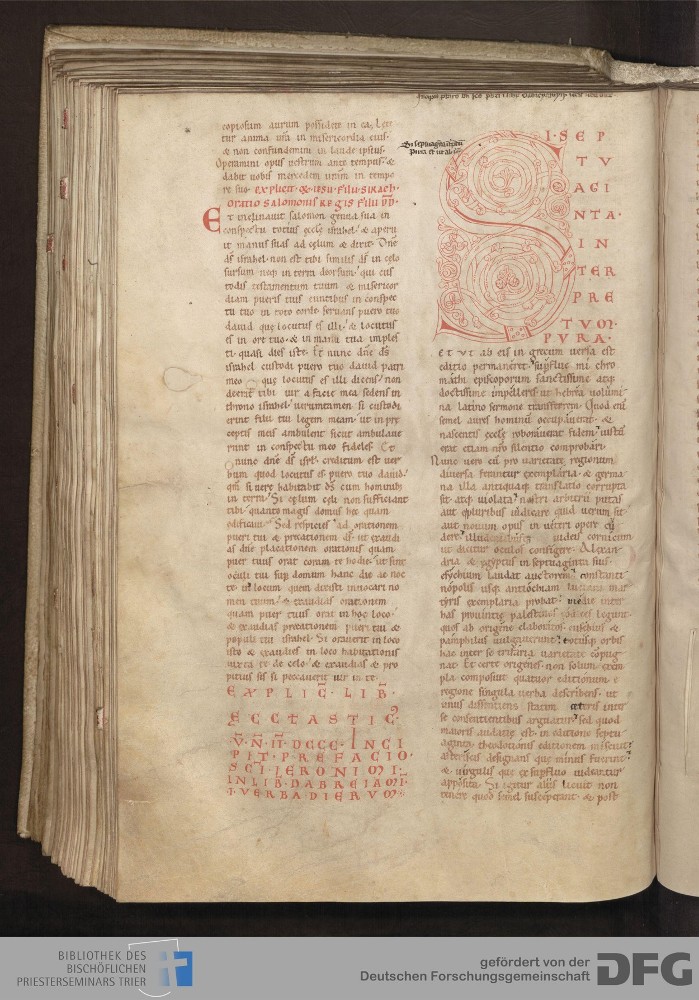 copiosum aurum possidete in ea; Lęte
tur anima ura in misericordia eius.
& non confundemini in laude ipsius.
Operamini opus uestrum ante tempus. &
dabit uobis mercedem uram in tempo
re suo. explicit & iesu. filii sirach.
oratio salomonis regis filii dd.
Et inclinauit salomon genua sua in
conspectu totius ęcclę israhel. & aperu
it manus suas ad cęlum & dixit. Dne
ds israhel. non est tibi similis ds in cęlo
sursum neq; in terra deorsum. qui cus
todis testamentum tuum & misericor
diam pueris tuis euntibus in conspec
tu tuo in toto corde. seruans puero tuo
dauid quę locutus es illi. & locutus
es in ore tuo. & in manu tua imples
ti. quasi dies iste. Et nunc dne ds
israhel custodi puero tuo dauid patri
meo quę locutus es illi dicens. non
deerit tibi uir a facie mea sedens in
throno israhel. uerumtamen si custodi
erint filii tui legem meam. ut in prę
ceptis meis ambulent sicut ambulaue
runt in conspectu meo fideles. Et
nunc dne ds isrl. creditum est uer
bum quod locutus es puero tuo dauid.
qm si uere habitabit ds cum hominib;
in terra. Si cęlum cęli non sufficiunt
tibi. quanto magis domus hęc quam
ędificaui. Sed respicies ad orationem
pueri tui & precationem ds. ut exaudi
as dne placationem orationis quam
puer tuus orat coram te hodie. ut sint
oculi tui sup domum hanc die ac noc
te. in locum quem dixisti inuocari no
men tuum. & exaudias orationem
quam puer tuus orat in hoc loco.
& exaudias precationem pueri tui &
populi tui israhel. Si orauerit in loco
isto & exaudies in loco habitationis
tuę de celo. & exaudias & pro
pitius sis si peccauerit uir in te.
EXPLIC. LIB.
ECCTASTIC
V. N. II DCCC. INCI
PIT. PREFACIO.
SCI. IERONIMI.
IN LIB. DABREIAMI.
I. VERBA DIERVM.
SI SEP
TV
AGI
NTA.
IN
TER
PRE
TVM.
PVRA.
et ut ab eis in gręcum uersa est
editio permaneret. supflue mi chro
mathi episcoporum sanctissime atq;
doctissime impelleres ut hebręa uolumi
na latino sermone transferrem. Quod eni
semel aures hominum occupauerat. &
nascentis ęcclę roborauerat fidem. iustu
erat etiam nro silentio comprobari.
Nunc uero cu pro uarietate regionum
diuersa feruntur exemplaria. & germa
na illa antiquaq; translatio corrupta
sit. atq; uiolata. nostri arbitrii putas
aut epluribus iudicare quid uerum sit.
aut nouum opus in ueteri opere
dere. cornicum
ut dicitur oculos configere. Alexan
dria & ęgyptus in septuaginta suis
esychium laudat auctorem. constanti
nopolis usq; antiochiam luciani mar
thyris exemplaria probat. medię inter
has prouincię palestinos codices legunt
quos ab origene elaboratos eusebius &
pamphilus uulgauerunt. totusq; orbis
hac inter se trifaria uarietate copug
nat. Et certe origenes non solum exem
pla composuit quatuor editionum e
regione singula uerba describens. ut
unus dissentiens statim ceteris inter
se consentientibus arguatur. sed quod
maioris audacię est. in editione septu
aginta theodotionis editionem miscuit.
asteriscis designans quę minus fuerint.
& uirgulis que ex supfluo uideantur
apposita. Si igitur aliis licuit non
tenere quod semel susceperant. & post
BIBLIOTHEK DES
BISCHÖFLICHEN
PRIESTERSEMINARS TRIER
gefördert von der
Deutschen Forschungsgemeinschaft DFG